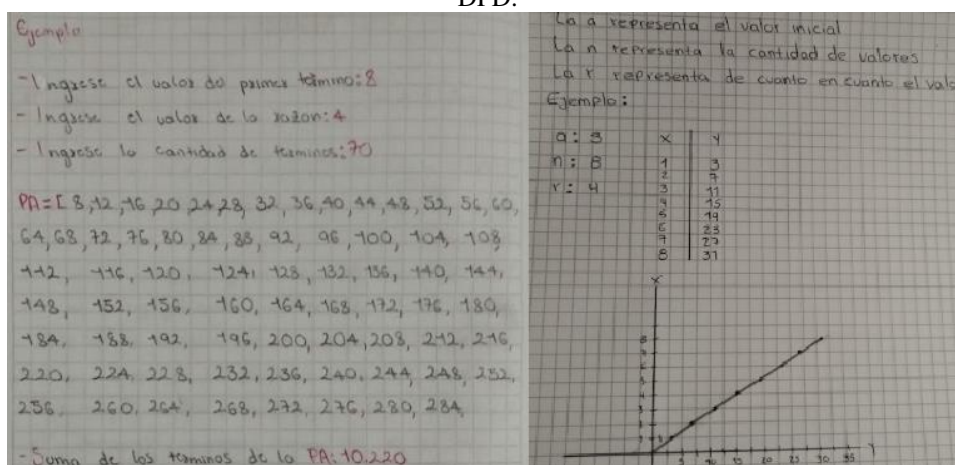 DFD.
Ejemplo
- Ingrese el valor do primer término: 8
- Ingrese el valor de la razon: 4
- Ingrese la cantidad de terminos: 70
PA = [ 8, 12, 16 20 24, 28, 32, 36, 40, 44, 48, 52, 56, 60,
64, 68, 72, 76, 80, 84, 88, 92, 96, 100, 104, 108,
112, 116, 120, 124, 128, 132, 136, 140, 144,
148, 152, 156, 160, 164, 168, 172, 176, 180,
184, 188, 192, 196, 200, 204, 208, 212, 216,
220, 224, 228, 232, 236, 240, 244, 248, 252,
256, 260, 264, 268, 272, 276, 280, 284,
- Suma de los terminos de la PA: 10.220
La a representa el valor inicial
La n representa la cantidad de valores
La r representa de cuanto en cuanto el valo
Ejemplo:
a: 3
n: 8
r: 4
x y
1 3
2 7
3 11
4 15
5 19
6 23
7 27
8 31
x
8
7
6
5
4
3
2
1
5 10 15 20 25 30 35 y